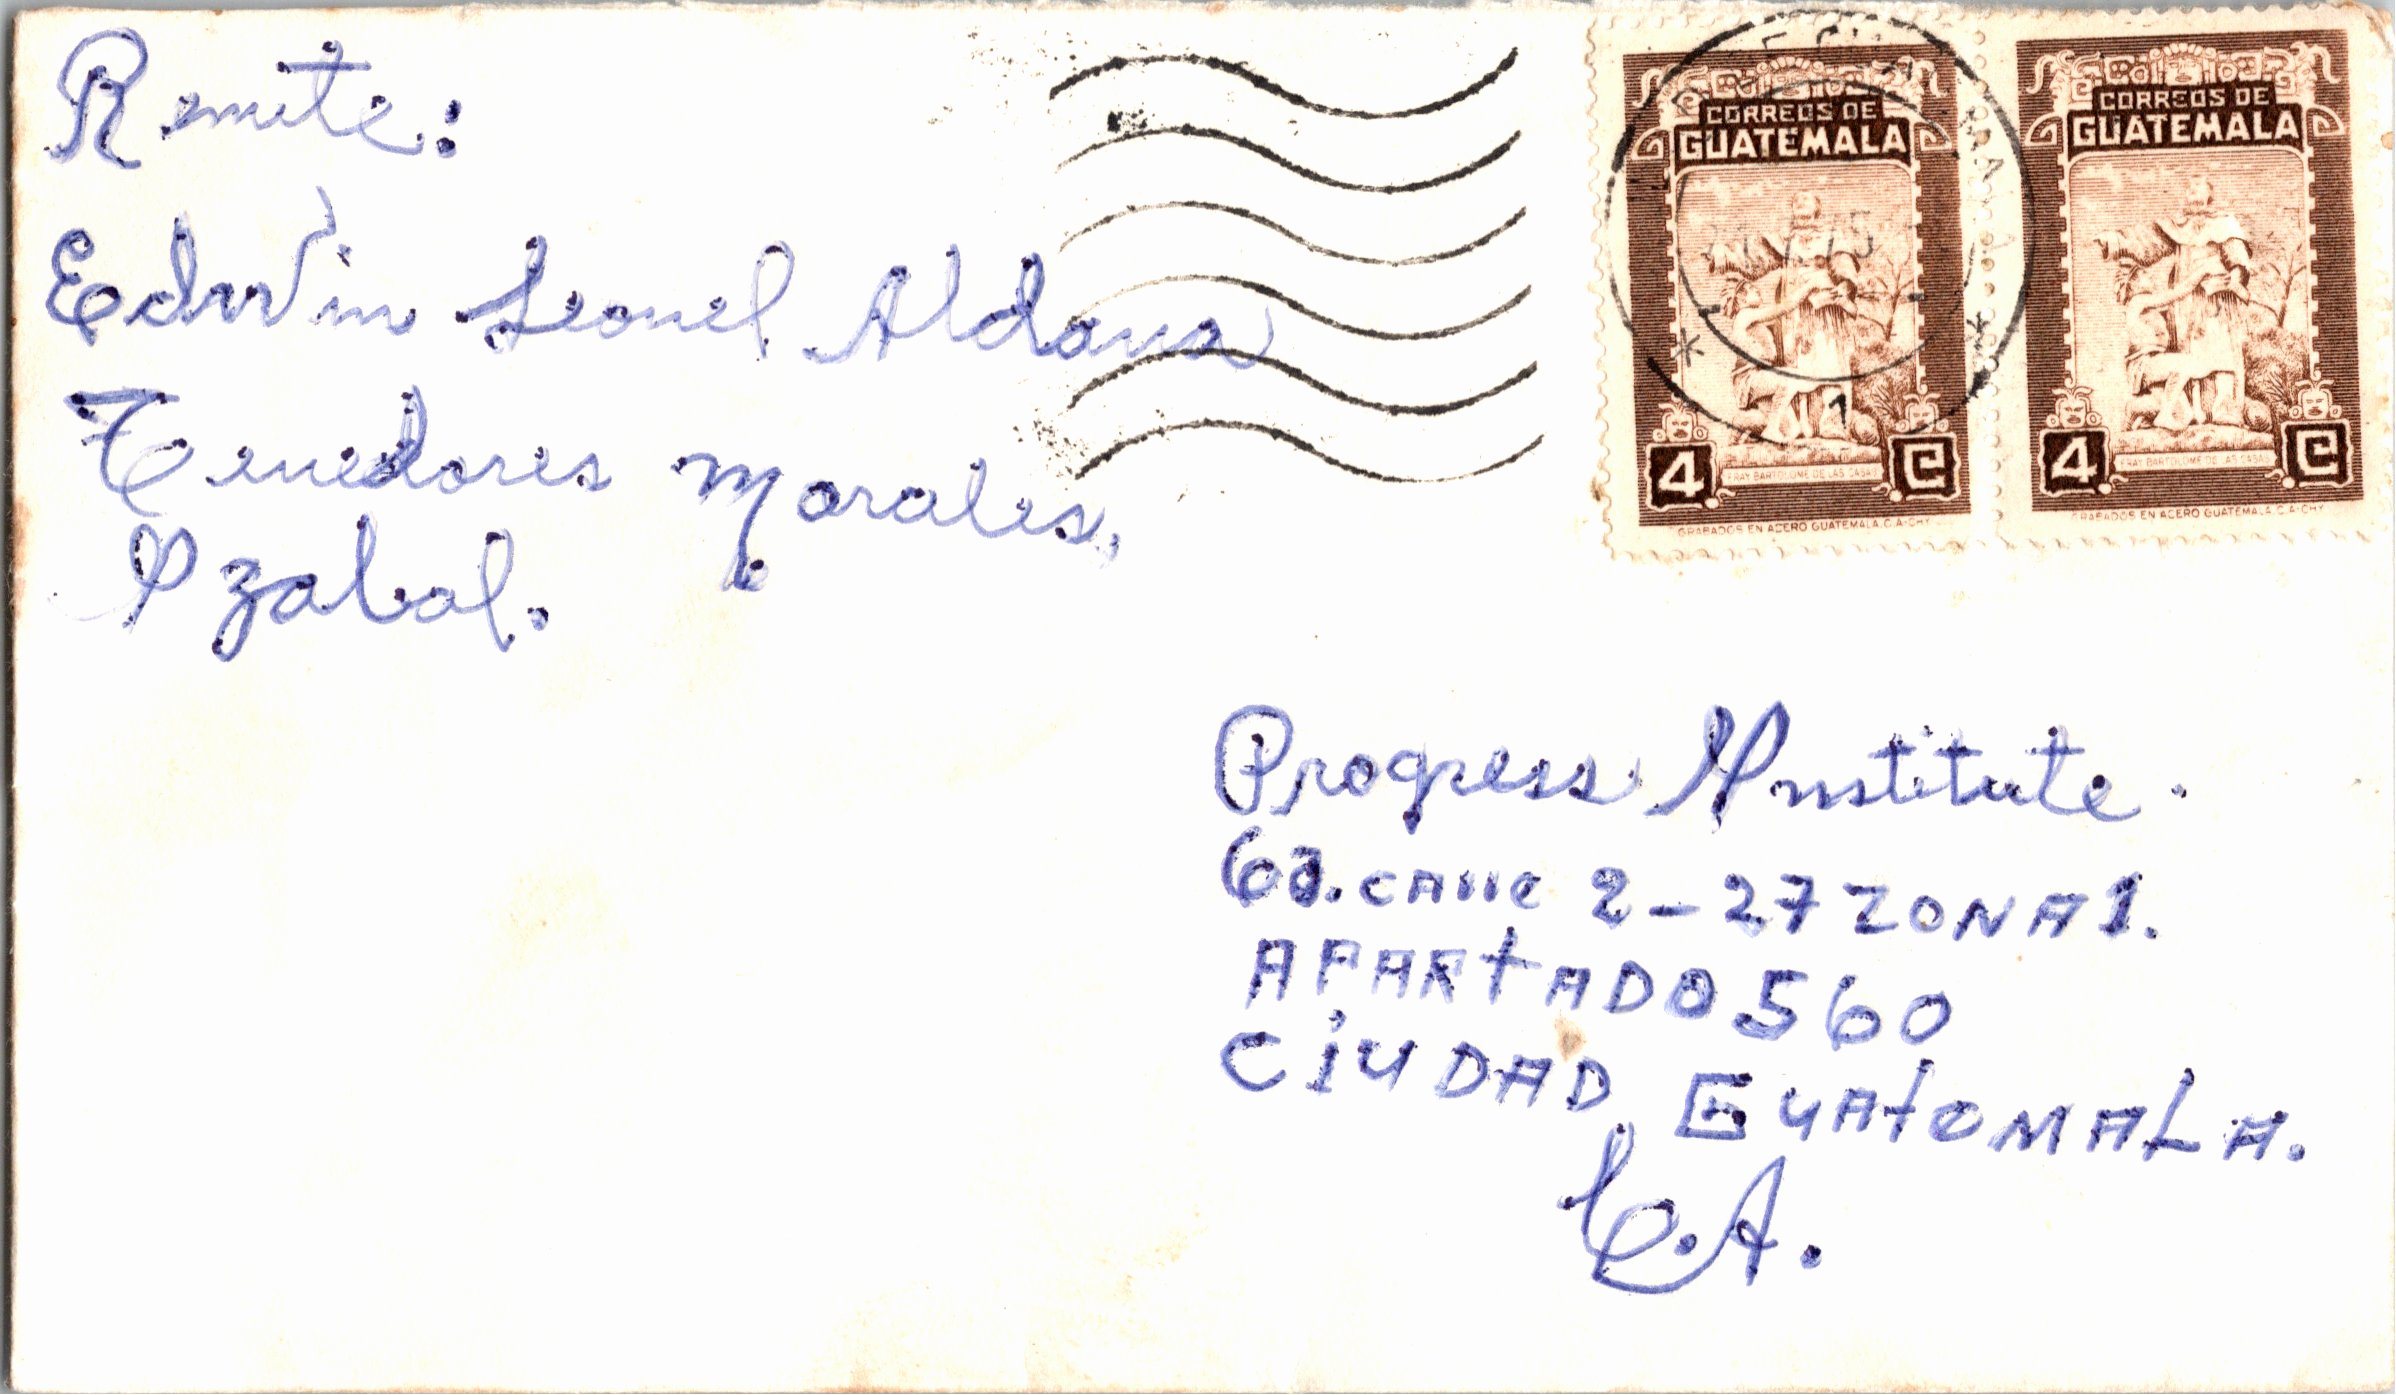 Remite:
Edwin Leonel Aldana
Tenedores Morales,
Izabal.
CORREOS DE
GUATEMALA
4 C
FRAY BARTOLOME DE LAS CASAS
GRABADOS EN ACERO GUATEMALA, C.A-CHY
CORREOS DE
GUATEMALA
4 C
FRAY BARTOLOME DE LAS CASAS
GRABADOS EN ACERO GUATEMALA, C.A-CHY
1
Progress Institute.
6a. calle 2-27 ZONA 1.
APARtADO 560
CiUDAD GUAteMALA.
C.A.